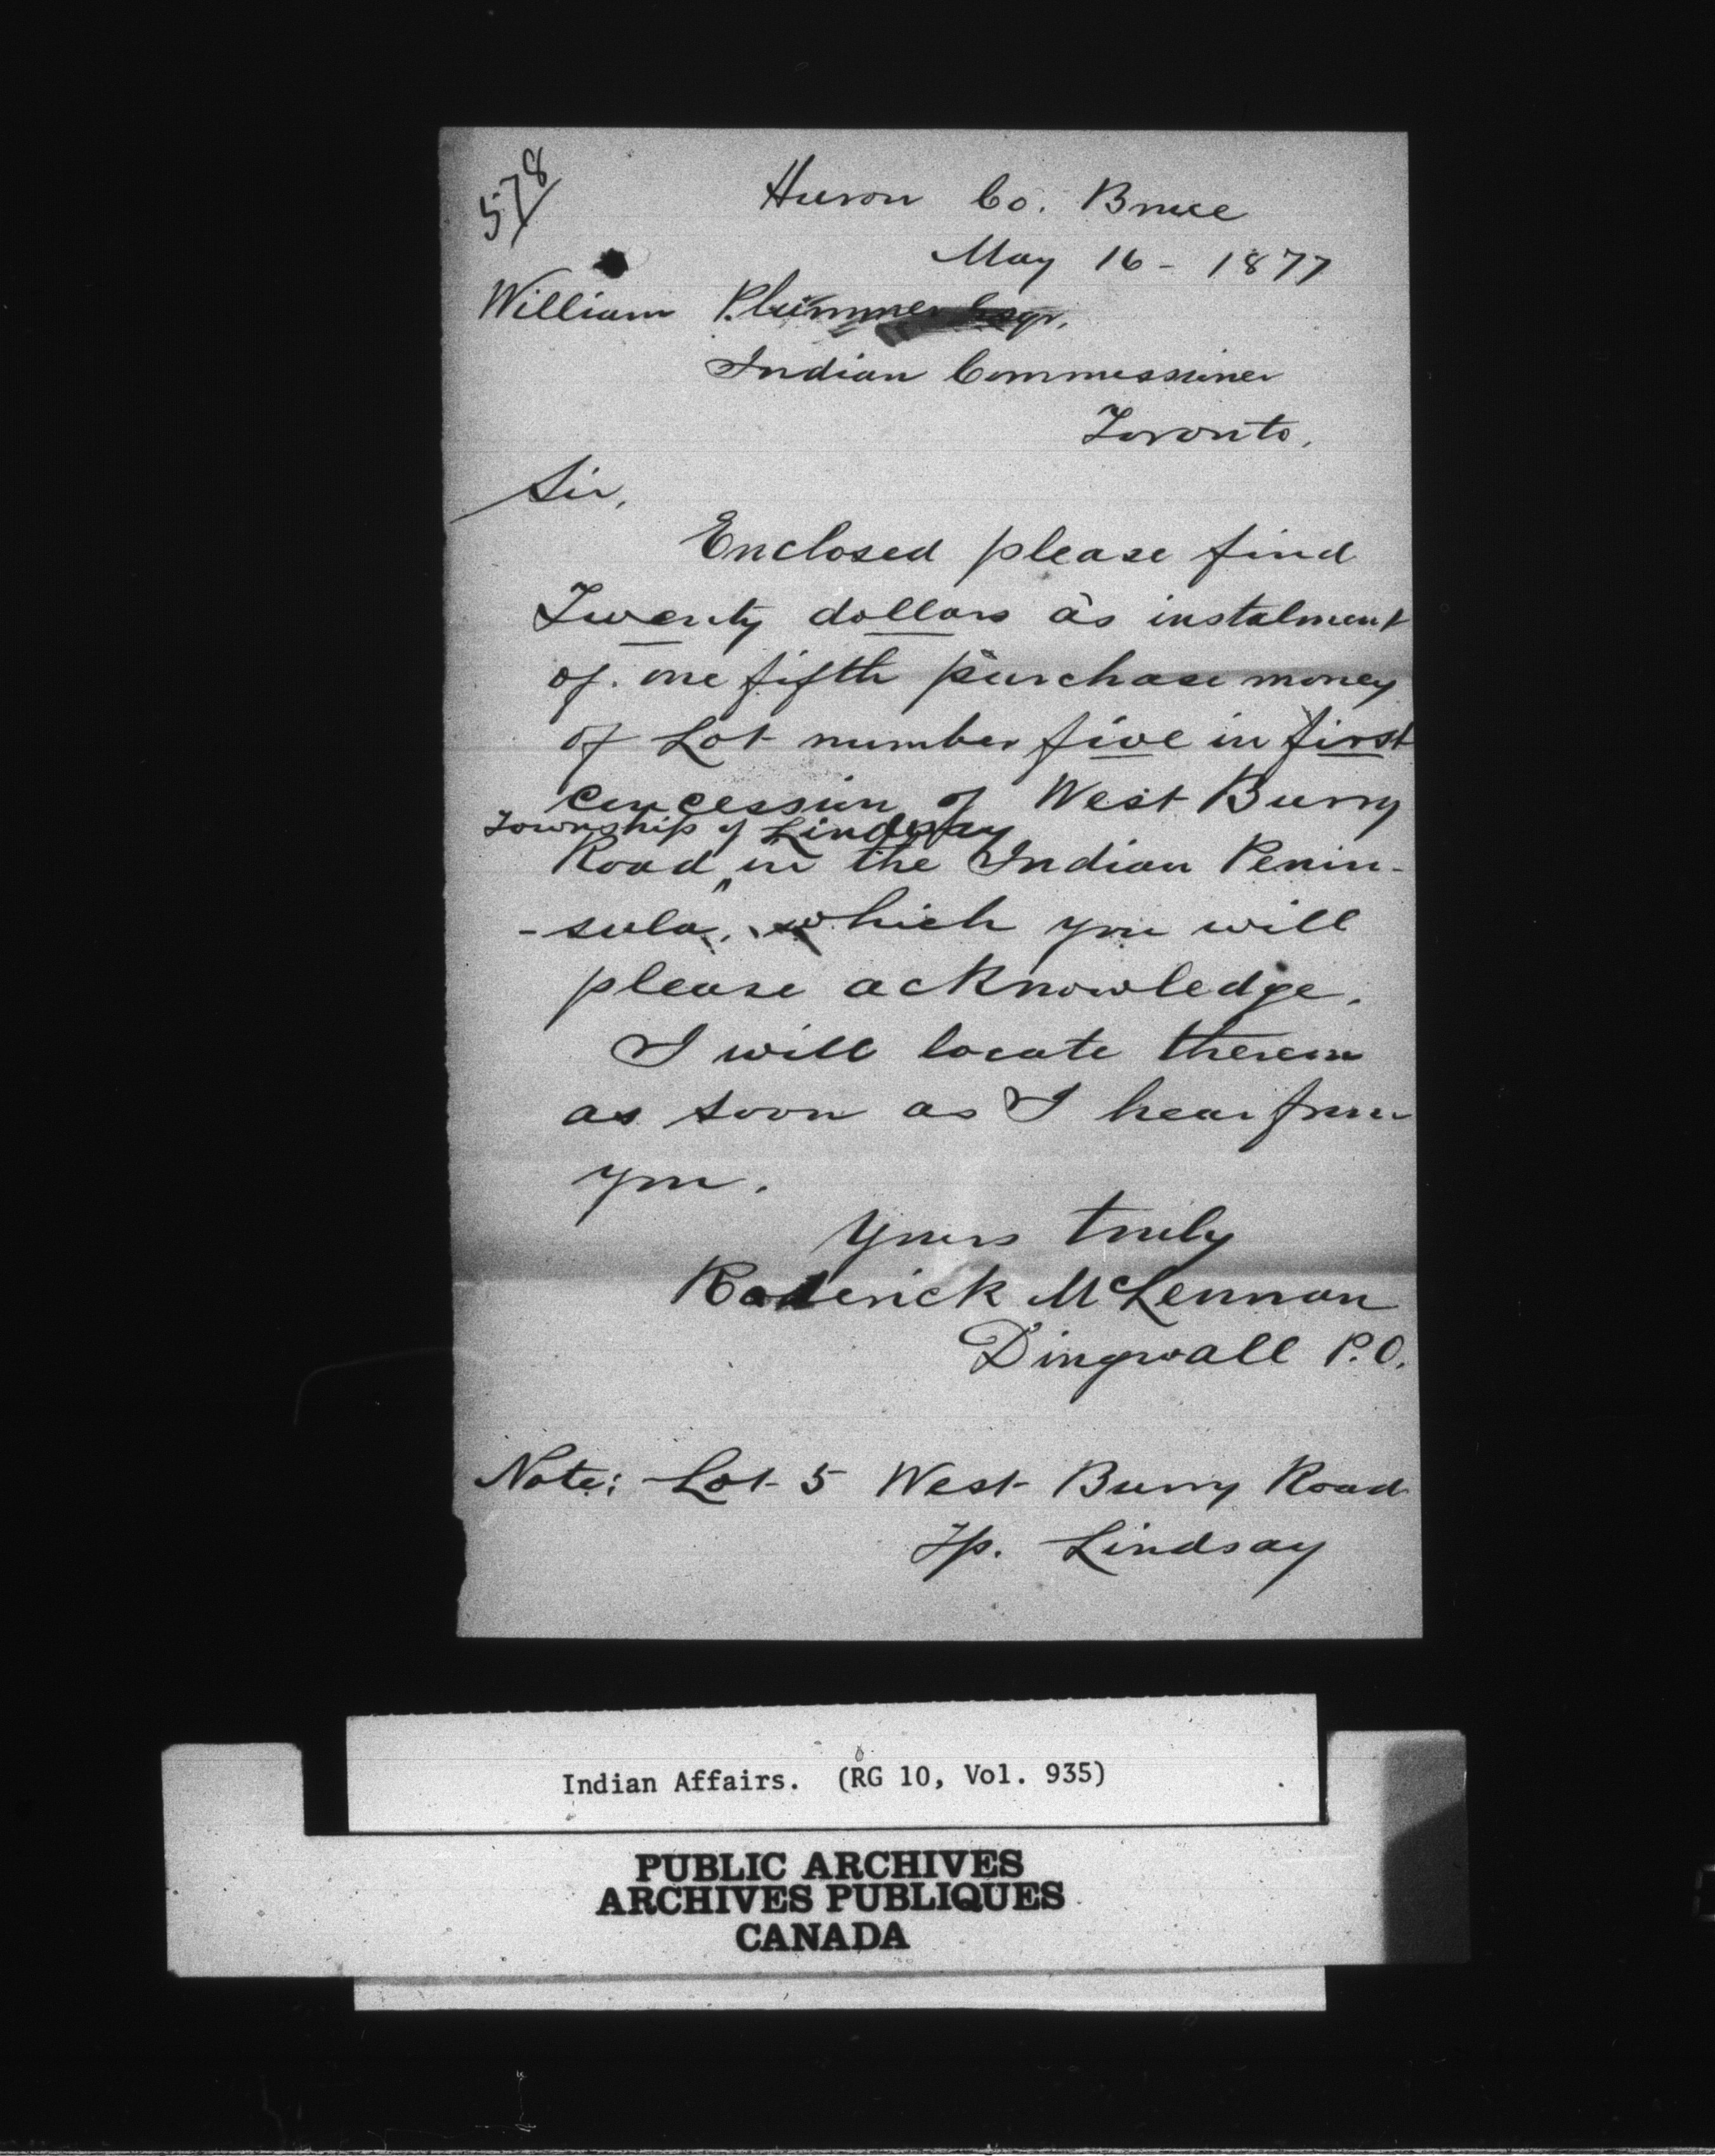 578
Huron Co. Bruce
May 16 - 1877
William Plummer Esqr.
Indian Commissioner
Toronto.
Sir,
Enclosed please find
Twenty dollars as instalment
of one fifth purchase money
of Lot number five in first
concession of West Burry
Township of Lindsay
Road " in the Indian Penin-
-sula, which you will
please acknowledge.
I will locate thereon
as soon as I hear from
you.
Yours truly
Roderick McLennan
Dingwall P.O.
Note: Lot 5 West Burry Road
Tp. Lindsay
Indian Affairs. (RG 10, Vol. 935)
PUBLIC ARCHIVES
ARCHIVES PUBLIQUES
CANADA